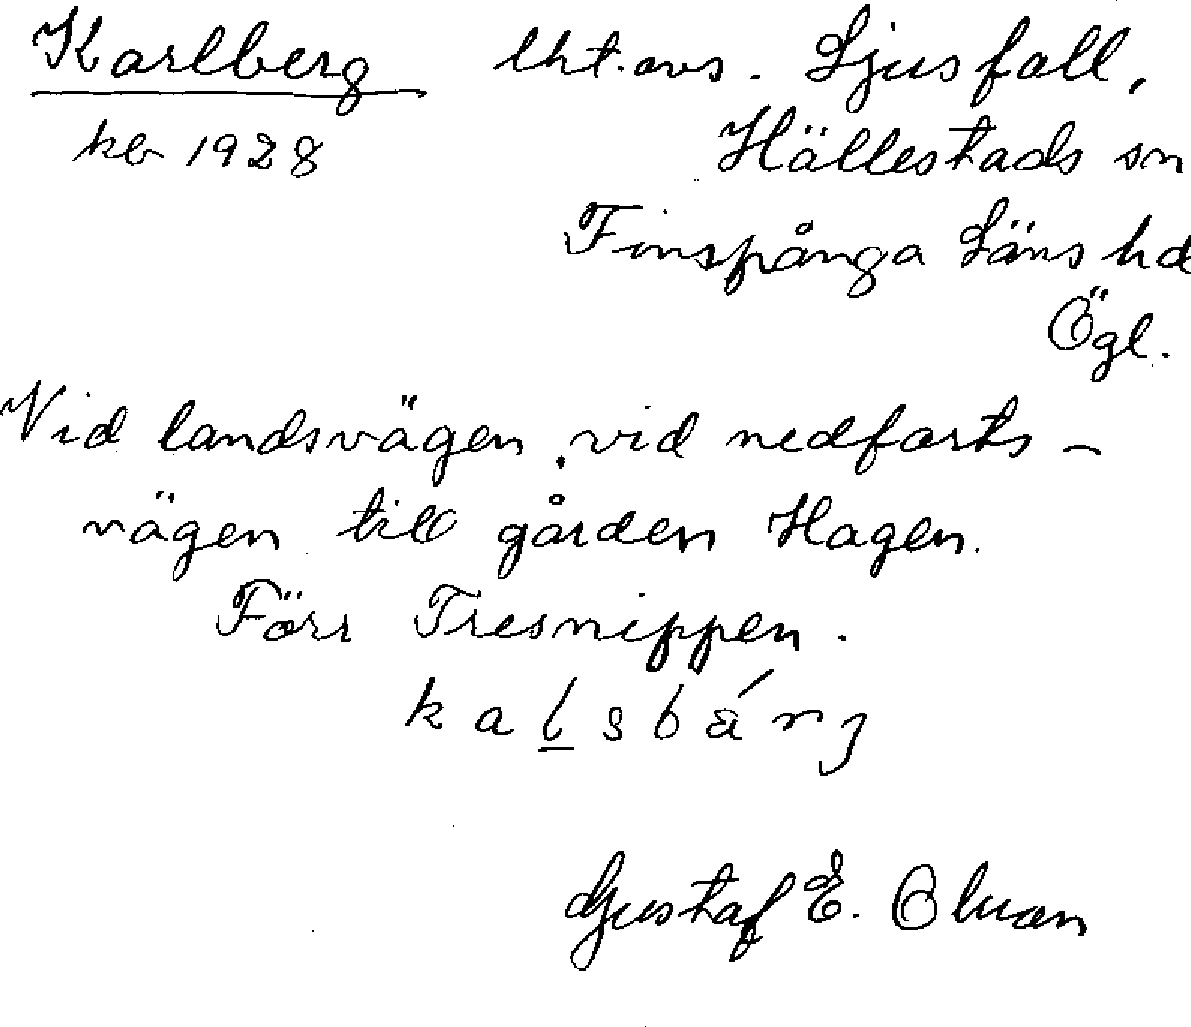 Karlberg lht. avs. Ljusfall,
kb 1928 Hällestads sn
Finspånga Läns hd
Ögl.
Vid landsvägen, vid nedfarts-
vägen till gården Hagen.
Förr Tresnippen.
kalsbárj
Gustaf E.